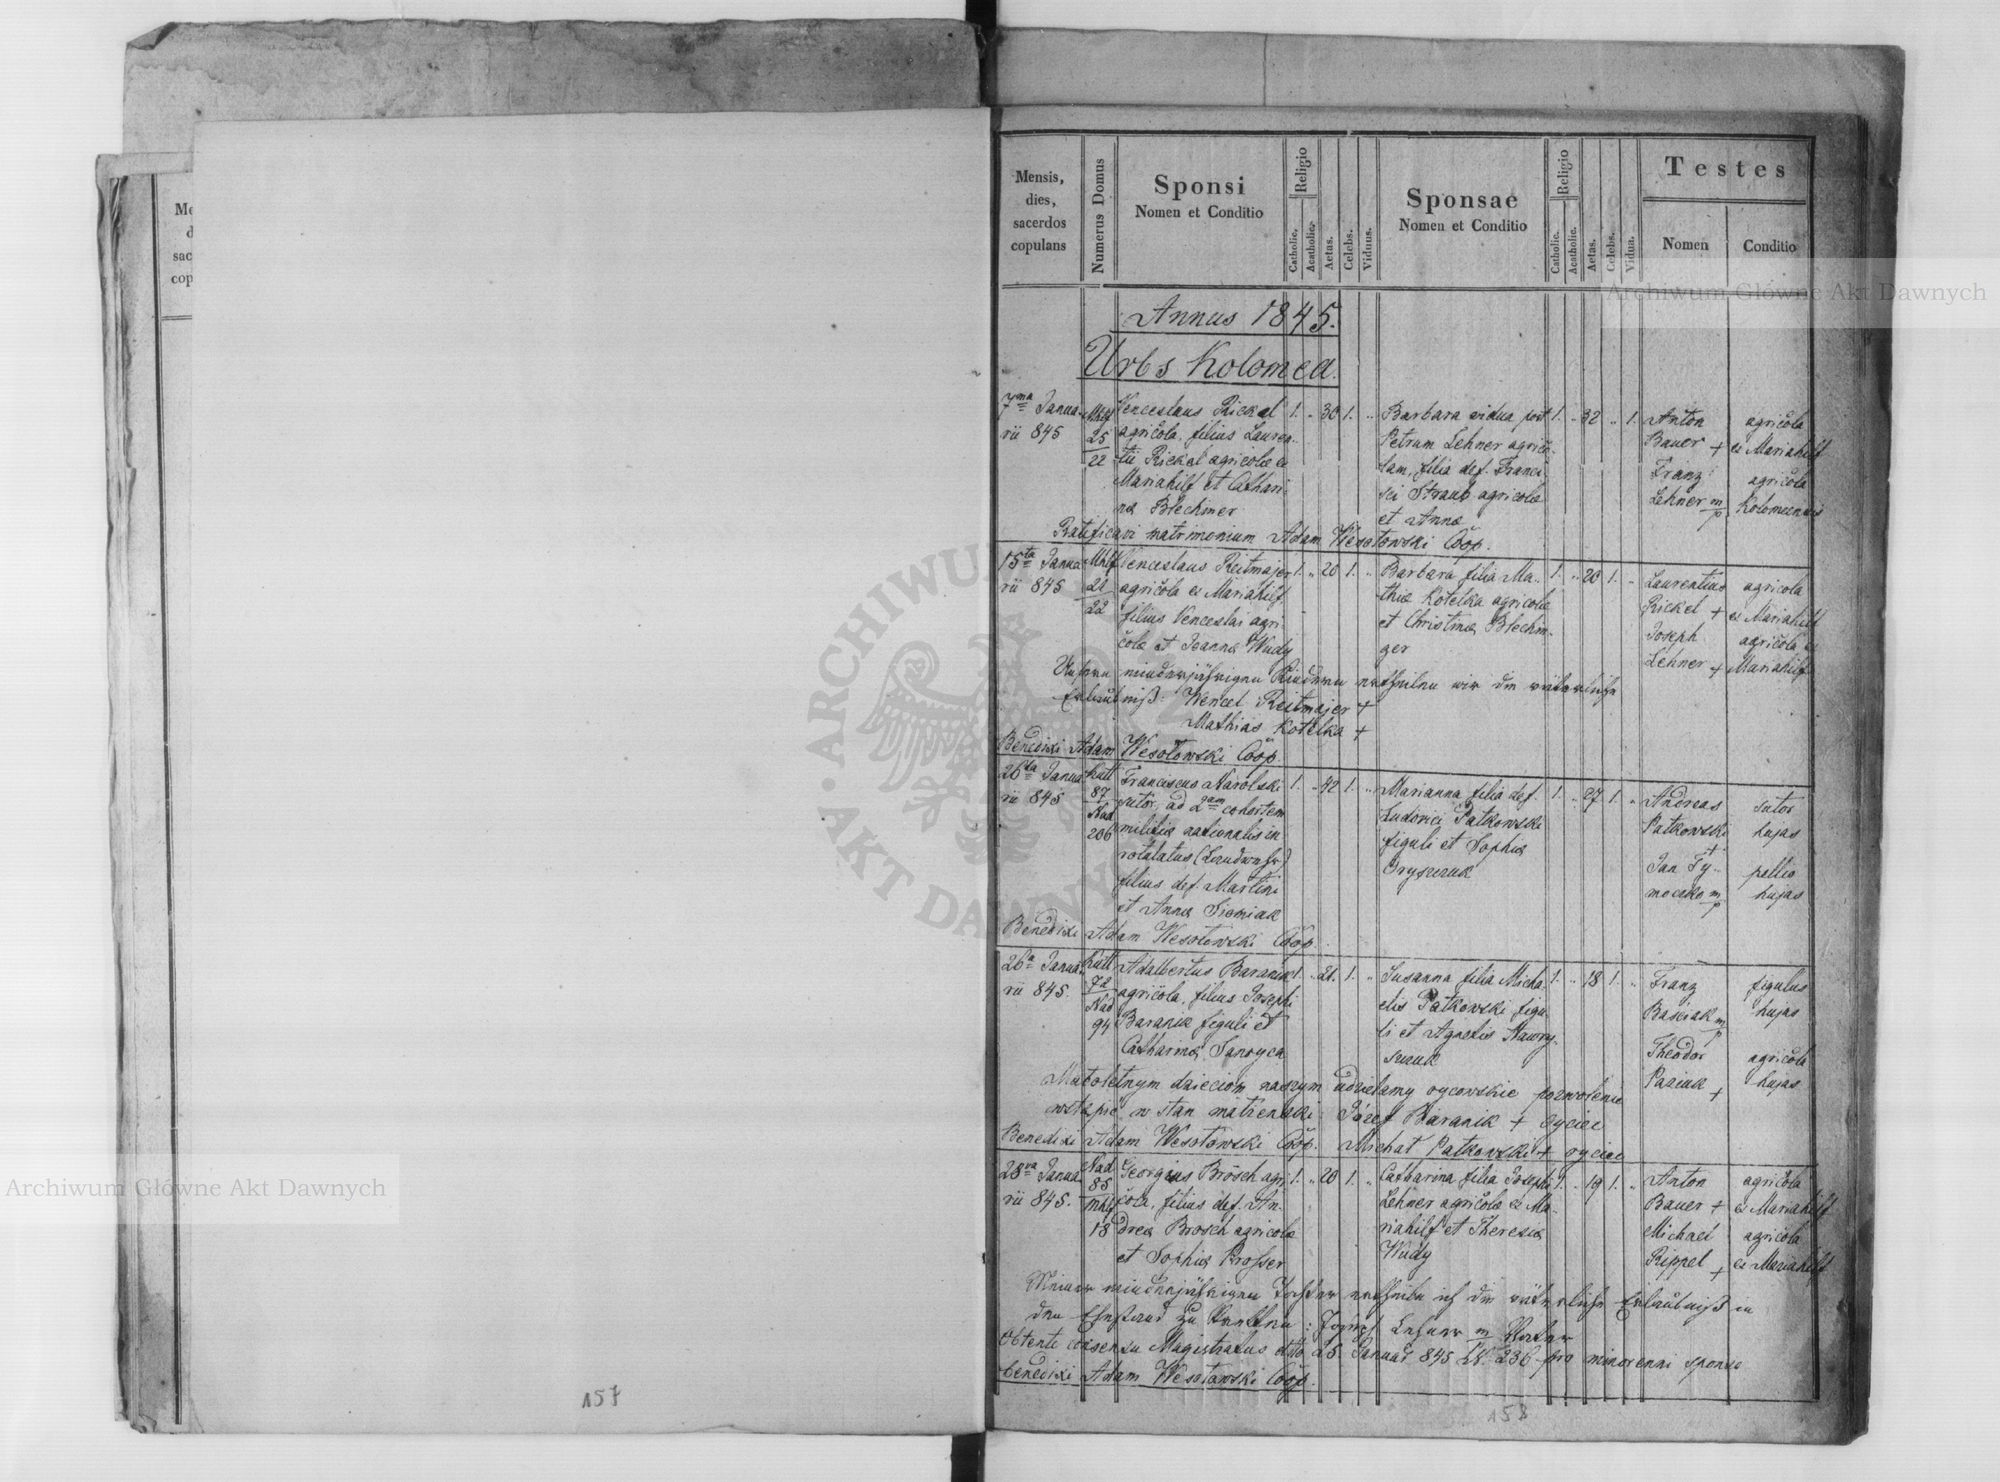 Mensis,
dies,
sacerdos
copulans
Numerus Domus
Sponsi
Nomen et Conditio
Religio
Catholic.
Acatholic.
Aetas.
Celebs.
Viduus.
Sponsae
Nomen et Conditio
Religio
Catholic.
Acatholic.
Aetas.
Celebs.
Vidua.
Testes
Nomen
Conditio
Annus 1845.
Urbs Kolomea.
7ma Janua-
rii 845
Mhlf
25
22
Venceslaus Rickel
agricola, filius Lauren-
tii Rickel agricolæ ex
Mariahilf et Cathari-
næ Blechiner
1. „ 30 1. „
Barbara vidua post
Petrum Lehner agrico-
lam, filia def. Franci-
sci Straub agricolæ
et Annæ
1. „ 32 „ 1.
Anton
Bauer +
Franz
Lehner mp
agricola
ex Mariahilf
agricola
Kolomeensis
Ratificavi matrimonium Adam Wesołowski Coop.
15ta Janua
rii 845
Mhlf
21
22
Venceslaus Reitmajer
agricola ex Mariahilf
filius Venceslai agri-
colæ et Joannæ Wudy
1. „ 20 1. „
Barbara filia Ma-
thiæ Kotelka agricolæ
et Christinæ Blechin-
ger
1. „ 20 1. „
Laurentius
Rickel +
Joseph
Lehner +
agricola
ex Mariahilf
agricola ex
Mariahilf
Unsern minderjährigen Kindern ertheilen wir die väterliche
Erlaubniß: Wencel Reitmajer +
Mathias Kotelka +
Benedixi Adam Wesołowski Coop.
26ta Janua
rii 845
Kutt
87
Nad
206
Franciscus Narolski
sutor, ad 2dam cohortem
militiæ nationalis in
rotulatus (Landwehr)
filius def. Martini
et Annæ Siomiak
1. „ 42 1. „
Marianna filia def.
Ludovici Patkowski
figuli et Sophiæ
Gryszczuk
1. „ 27 1. „
Andreas
Patkowski
+
Jan Ty-
moczko mp
sutor
hujas
pellio
hujas
Benedixi Adam Wesołowski Coop.
26a Janua
rii 845.
Kutt
72
Nad
94
Adalbertus Baranik
agricola, filius Josephi
Baranik figuli et
Catharinæ Sanoyca
1. „ 21. 1. „
Susanna filia Micha-
elis Patkowski figu-
li et Agnetis Hawry-
szczuk
1. „ 18 1. „
Franz
Basiak mp
Theodor
Paziuk +
figulus
hujas
agricola
hujas
Małoletnym dzieciom naszym udzielamy oycowskie pozwolenie
wstąpić w stan małżenski: Józef Baranik + oyciec
Benedixi Adam Wesołowski Coop. Michał Patkowski + oyciec
28va Janua
rii 845.
Nad
85
Mhlf
18
Georgius Brösch agri-
cola, filius def. An-
dreæ Brosch agricolæ
et Sophiæ Prosser
1. „ 20 1. „
Catharina filia Josephi
Lehner agricolæ ex Ma-
riahilf et Theresiæ
Wudy
1. „ 19 1. „
Anton
Bauer +
Michael
Rippel +
agricola
ex Mariahilf
agricola
ex Mariahilf
Meiner minderjährigen Tochter ertheile ich die väterliche Erlaubniß in
den Ehestand zu tretten: Joseph Lehner mp Vater
Obtento consensu Magistratus dtto 25 Januar 845 Z. 236 pro minorenni sponso
benedixi Adam Wesołowski Coop.
157
158
Archiwum Główne Akt Dawnych
Archiwum Główne Akt Dawnych